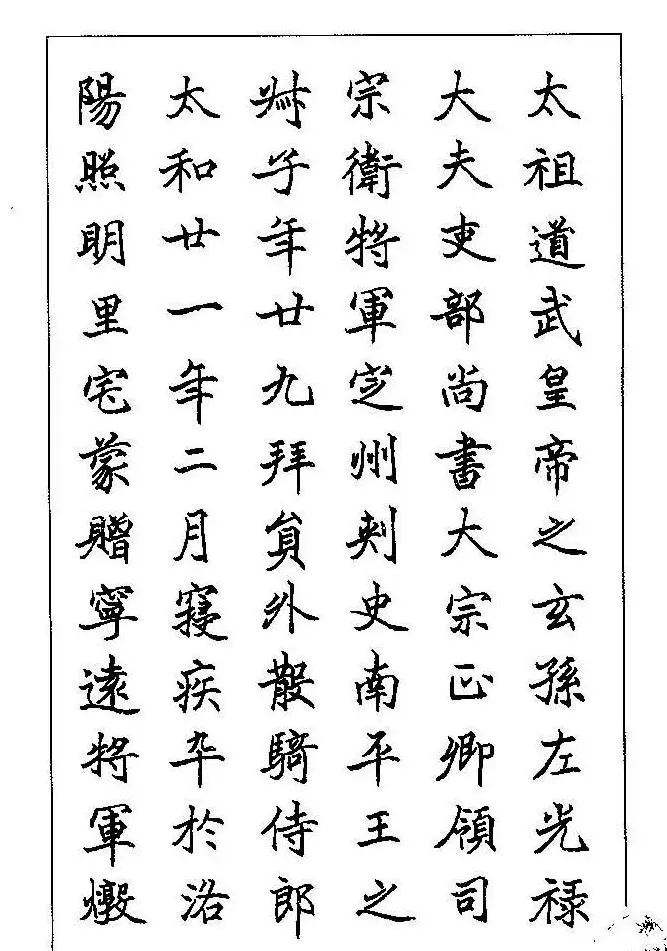 太祖道武皇帝之玄孫左光祿
大夫吏部尚書大宗正卿領司
宗衛將軍定州刾史南平王之
子年廿九拜貟外散騎侍郎
太和廿一年二月寢疾卒於洛
陽照明里宅蒙贈寧遠將軍燉